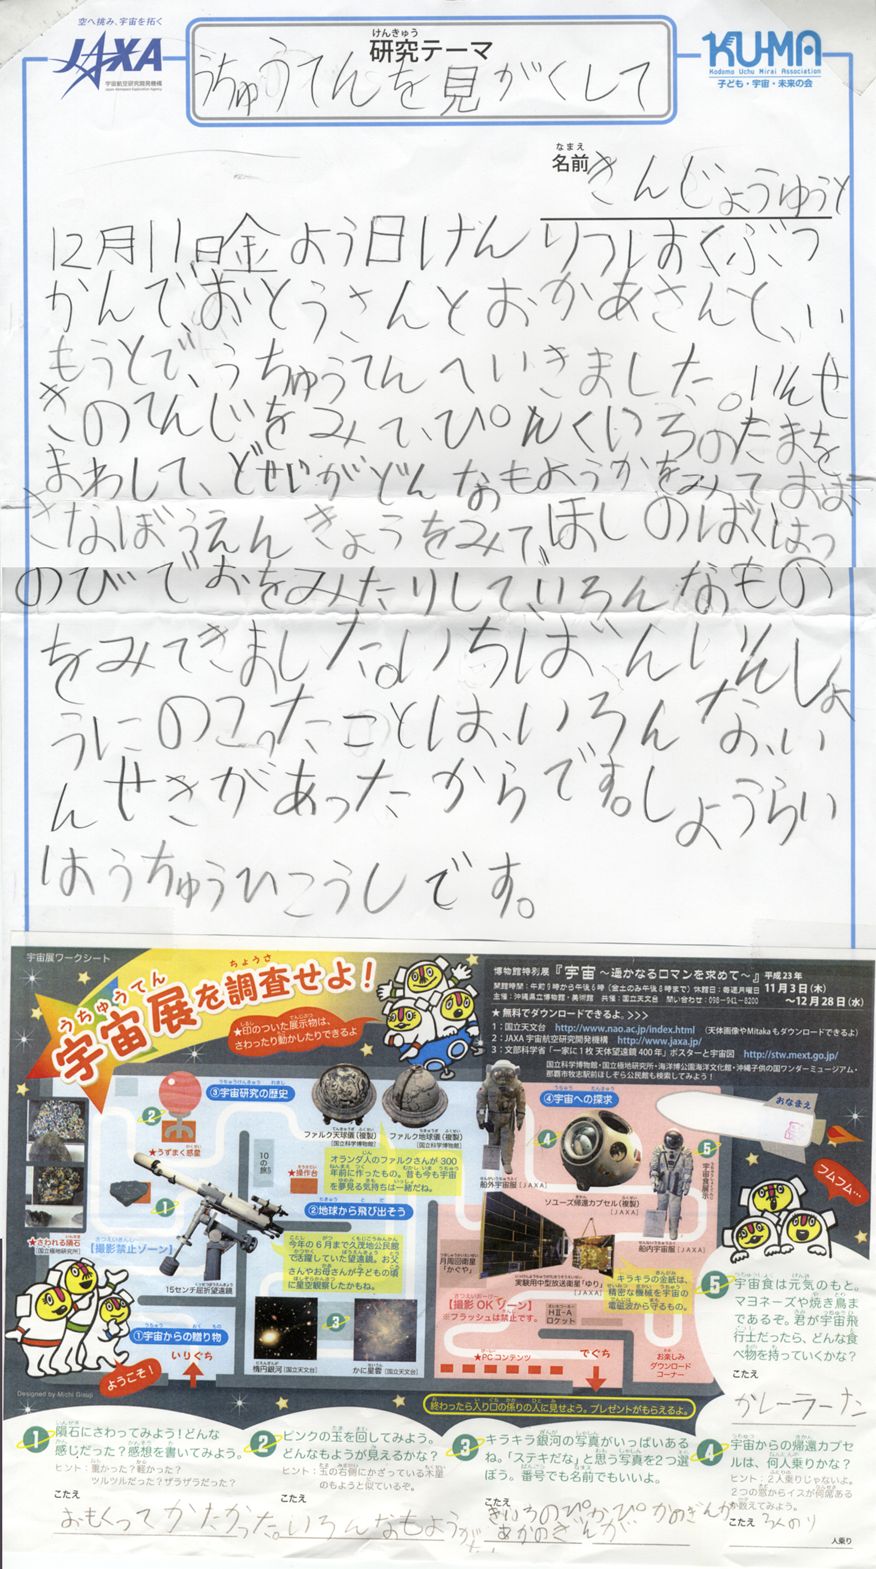 空へ挑み、宇宙を拓く
JAXA
宇宙航空研究開発機構
Japan Aerospace Exploration Agency
けんきゅう
研究テーマ
うちゅうてんを見がくして
KU-MA
Kodomo Uchu Mirai Association
子ども・宇宙・未来の会
なまえ
名前 きんじょうゆうと
12月11日金よう日けんりつはくぶつ
かんで、おとうさんとおかあさんと、い
もうとで、うちゅうてんへいきました。いんせ
きのてんじをみて、ぴんくいろのたまを
まわして、どせいがどんなもようかをみておお
きなぼうえんきょうをみて、ほしのばくはつ
のびでおをみたりして、いろんなもの
をみてきました。いちばんいんしょ
うにのこったことは、いろんな、い
んせきがあったからです。しょうらい
はうちゅうひこうしです。
宇宙展ワークシート
うちゅうてん ちょうさ
宇宙展を調査せよ!
★印のついた展示物は、
さわったり動かしたりできるよ
博物館特別展『宇宙 〜遥かなるロマンを求めて〜』平成23年
11月3日(木)
〜12月28日(水)
開館時間:午前9時から午後6時(金土のみ午後8時まで) 休館日:毎週月曜日
主催:沖縄県立博物館・美術館 共催:国立天文台 問い合わせ:098-941-8200
★無料でダウンロードできるよ。>>>
1:国立天文台 http://www.nao.ac.jp/index.html (天体画像やMitakaもダウンロードできるよ)
2:JAXA 宇宙航空研究開発機構 http://www.jaxa.jp/
3:文部科学省「一家に1枚 天体望遠鏡400年」ポスターと宇宙図 http://stw.mext.go.jp/
国立科学博物館・国立極地研究所・海洋博公園海洋文化館・沖縄子供の国ワンダーミュージアム・
那覇市牧志駅前ほしぞら公民館も検索してみよう!
③宇宙研究の歴史
2
★うずまく惑星
1
★さわれる隕石
[国立極地研究所]
【撮影禁止ゾーン】
15センチ屈折望遠鏡
10の旅
★操作台
ファルク天球儀(複製)
[国立科学博物館]
ファルク地球儀(複製)
[国立科学博物館]
オランダ人のファルクさんが300
年前に作ったもの。昔も今も宇宙
を夢見る気持ちは一緒だね。
②地球から飛び出そう
今年の6月まで久茂地公民館
で活躍していた望遠鏡。お父
さんやお母さんが子どもの頃
に星空観察したかもね。
3
楕円銀河[国立天文台]
かに星雲[国立天文台]
①宇宙からの贈り物
いりぐち
ようこそ!
Designed by Michi Group
④宇宙への探求
4
船外宇宙服[JAXA]
ソユーズ帰還カプセル(複製)
[JAXA]
5
宇宙食展示
船内宇宙服[JAXA]
おなまえ
フムフム…
月周回衛星
「かぐや」
実験用中型放送衛星「ゆり」[JAXA]
【撮影OKゾーン】
※フラッシュは禁止です。
HⅡ-A
ロケット
キラキラの金紙は、
精密な機械を宇宙の
電磁波から守るもの。
★PCコンテンツ
でぐち
★お楽しみ
ダウンロード
コーナー
終わったら入り口の係りの人に見せよう。プレゼントがもらえるよ。
1 隕石にさわってみよう!どんな
感じだった?感想を書いてみよう。
ヒント:重かった?軽かった?
ツルツルだった?ザラザラだった?
こたえ
おもくってかたかった。
2 ピンクの玉を回してみよう。
どんなもようが見えるかな?
ヒント:玉の右側にかざっている木星
のもようと似ているぞ。
こたえ
いろんなもようが
3 キラキラ銀河の写真がいっぱいある
ね。「ステキだな」と思う写真を2つ選
ぼう。番号でも名前でもいいよ。
こたえ
きいろのぴかぴかのぎんが
あかのぎんが
4 宇宙からの帰還カプセ
ルは、何人乗りかな?
ヒント:2人乗りじゃないよ。
2つの窓からイスが何席ある
か数えてみよう。
こたえ 3人のり
人乗り
5 宇宙食は元気のもと。
マヨネーズや焼き鳥ま
であるぞ。君が宇宙飛
行士だったら、どんな食
べ物を持っていくかな?
こたえ
かレーラーナた